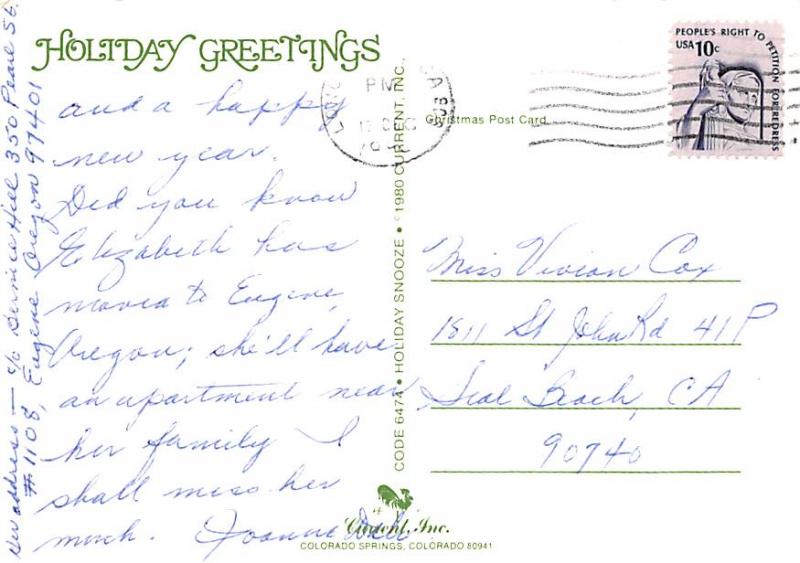 HOLIDAY GREETINGS
and a happy
new year.
Did you know
Elizabeth has
moved to Eugene,
Oregon; she'll have
an apartment near
her family I
shall miss her
much. Joanne
Her address — c/o Bernice Hill 350 Pearl St.
#1108, Eugene Oregon 97401
CODE 6474 • HOLIDAY SNOOZE • ©1980 CURRENT, INC.,
PM
CA
Christmas Post Card
PEOPLE'S RIGHT TO PETITION FOR REDRESS
USA 10c
Miss Vivian Cox
1811 St John Rd 41P
Seal Beach, CA
90740
Current, Inc.
COLORADO SPRINGS, COLORADO 80941